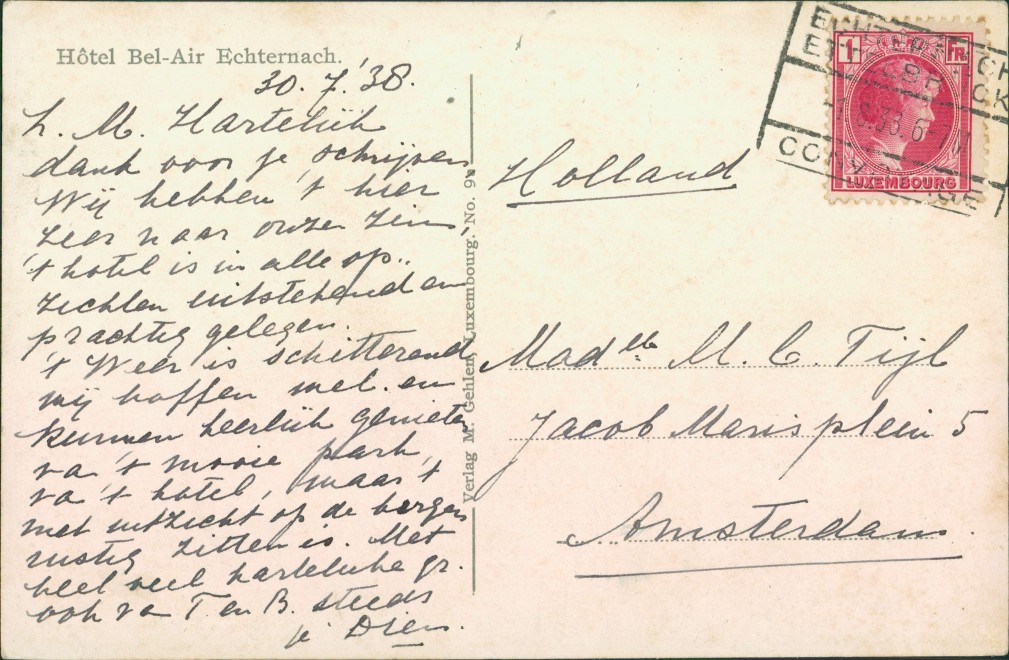 Hôtel Bel-Air Echternach.
30.7.'38.
L. M. Hartelijk
dank voor je schrijven
Wij hebben 't hier
zeer naar onze zin,
't hotel is in alle op-
zichten uitstekend en
prachtig gelegen.
't Weer is schitterend
wij boffen wel en
kunnen heerlijk genieten
va 't mooie park
va 't hotel, waar 't
met uitzicht op de bergen
rustig zitten is. Met
heel veel hartelijke gr.
ook va T en B. steeds
je Dien.
Verlag M. Gehlen, Luxembourg. No. 9
Holland
Madelle M. C. Tijl
Jacob Marisplein 5
Amsterdam.
1 Fr.
LUXEMBOURG